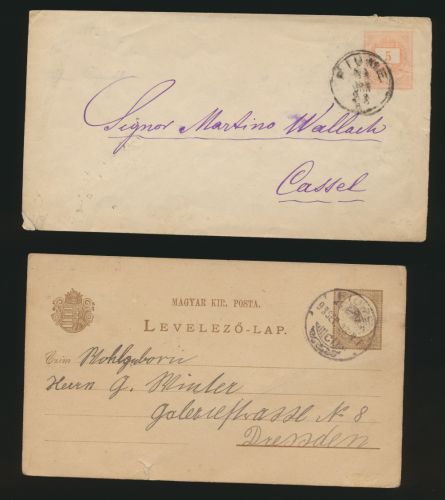 FIUME
5
Signor Martino Wallach
Cassel
MAGYAR KIR. POSTA.
LEVELEZŐ-LAP.
FIUME
Herrn G. Winter
No 8
Dresden